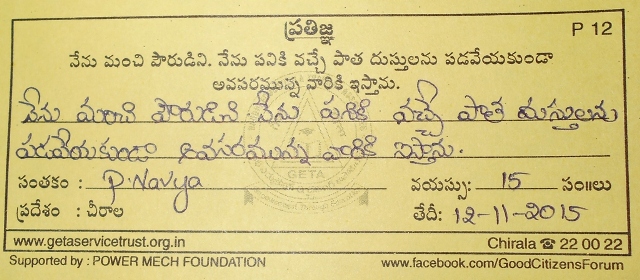 ప్రతిజ్ఞ P 12
నేను మంచి పౌరుడిని. నేను పనికి వచ్చే పాత దుస్తులను పడవేయకుండా
అవసరమున్న వారికి ఇస్తాను.
నేను మంచి పౌరుడిని నేను పనికి వచ్చే పాత దుస్తులను
పడవేయకుండా అవసరమున్న వారికి ఇస్తాను.
GETA
సంతకం : P. Navya వయస్సు: 15 సం॥లు
ప్రదేశం : చీరాల తేదీ: 12-11-2015
www.getaservicetrust.org.in Chirala ☎ 22 00 22
Supported by : POWER MECH FOUNDATION www.facebook.com/GoodCitizensForum